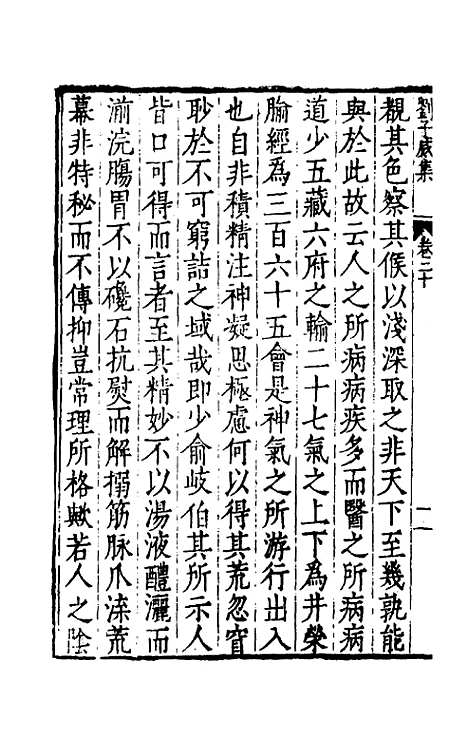 劉子威集
卷三十
二
覩其色察其候以淺深取之非天下至幾孰能
與於此故云人之所病病疾多而醫之所病病
道少五藏六府之輸二十七氣之上下為井滎
腧經為三百六十五會是神氣之所游行出入
也自非積精注神凝思極慮何以得其荒忽窅
眇於不可窮詰之域哉即少俞岐伯其所示人
皆口可得而言者至其精妙不以湯液醴灑而
湔浣腸胃不以鑱石抗熨而解搦筋脉爪湪荒
幕非特秘而不傳抑豈常理所格歟若人之陰